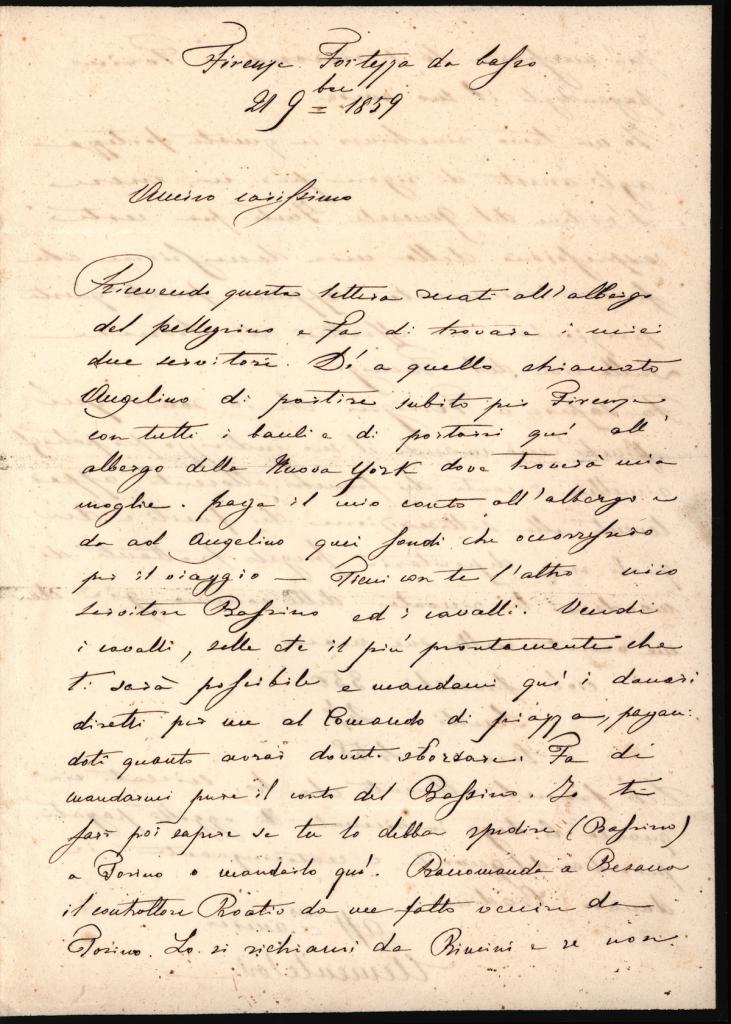 Firenze. Fortezza da basso
21 9bre 1859
Amico carissimo
Ricevendo questa lettera recati all'albergo
del pellegrino e fa di trovare i miei
due servitori. Di' a quello chiamato
Angelino di partire subito per Firenze
con tutti i bauli e di portarsi qui all'
albergo della Nuova York dove troverà mia
moglie. paga il mio conto all'albergo e
da ad Angelino quei fondi che occorressero
per il viaggio — Tieni con te l'altro mio
servitore Bassino ed i cavalli. Vendi
i cavalli, selle etc il più prontamente che
ti sarà possibile e mandami quì i danari
diretti per me al Comando di piazza, pagan:
doti quanto avrai dovuto sborsare. Fa di
mandarmi pure il conto del Bassino. Io ti
farò poi sapere se tu lo debba spedire (Bassino)
a Torino o mandarlo quì. Raccomanda a Besana
il controllore Roatis da me fatto venire da
Torino. Lo si richiami da Rimini e se non